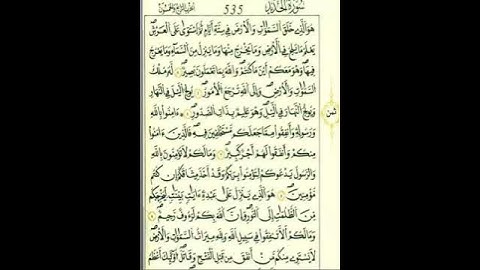 سُورَةُ الْحَدِيدِ
535
هُوَ الَّذِي خَلَقَ السَّمَٰوَٰتِ وَالْأَرْضَ فِي سِتَّةِ أَيَّامٍ ثُمَّ اسْتَوَىٰ عَلَى الْعَرْشِ
يَعْلَمُ مَا يَلِجُ فِي الْأَرْضِ وَمَا يَخْرُجُ مِنْهَا وَمَا يَنزِلُ مِنَ السَّمَاءِ وَمَا يَعْرُجُ
فِيهَا وَهُوَ مَعَكُمْ أَيْنَ مَا كُنتُمْ وَاللَّهُ بِمَا تَعْمَلُونَ بَصِيرٌ لَهُ مُلْكُ
السَّمَٰوَٰتِ وَالْأَرْضِ وَإِلَى اللَّهِ تُرْجَعُ الْأُمُورُ يُولِجُ اللَّيْلَ فِي النَّهَارِ
وَيُولِجُ النَّهَارَ فِي اللَّيْلِ وَهُوَ عَلِيمٌ بِذَاتِ الصُّدُورِ ءَامِنُوا بِاللَّهِ
ثمن
وَرَسُولِهِ وَأَنفِقُوا مِمَّا جَعَلَكُم مُّسْتَخْلَفِينَ فِيهِ فَالَّذِينَ ءَامَنُوا
مِنكُمْ وَأَنفَقُوا لَهُمْ أَجْرٌ كَبِيرٌ وَمَا لَكُمْ لَا تُؤْمِنُونَ بِاللَّهِ
وَالرَّسُولُ يَدْعُوكُمْ لِتُؤْمِنُوا بِرَبِّكُمْ وَقَدْ أَخَذَ مِيثَٰقَكُمْ إِن كُنتُم
مُّؤْمِنِينَ هُوَ الَّذِي يُنَزِّلُ عَلَىٰ عَبْدِهِ ءَايَٰتٍ بَيِّنَٰتٍ لِّيُخْرِجَكُم
مِّنَ الظُّلُمَٰتِ إِلَى النُّورِ وَإِنَّ اللَّهَ بِكُمْ لَرَءُوفٌ رَّحِيمٌ
وَمَا لَكُمْ أَلَّا تُنفِقُوا فِي سَبِيلِ اللَّهِ وَلِلَّهِ مِيرَٰثُ السَّمَٰوَٰتِ وَالْأَرْضِ
لَا يَسْتَوِي مِنكُم مَّنْ أَنفَقَ مِن قَبْلِ الْفَتْحِ وَقَٰتَلَ أُولَٰئِكَ أَعْظَمُ